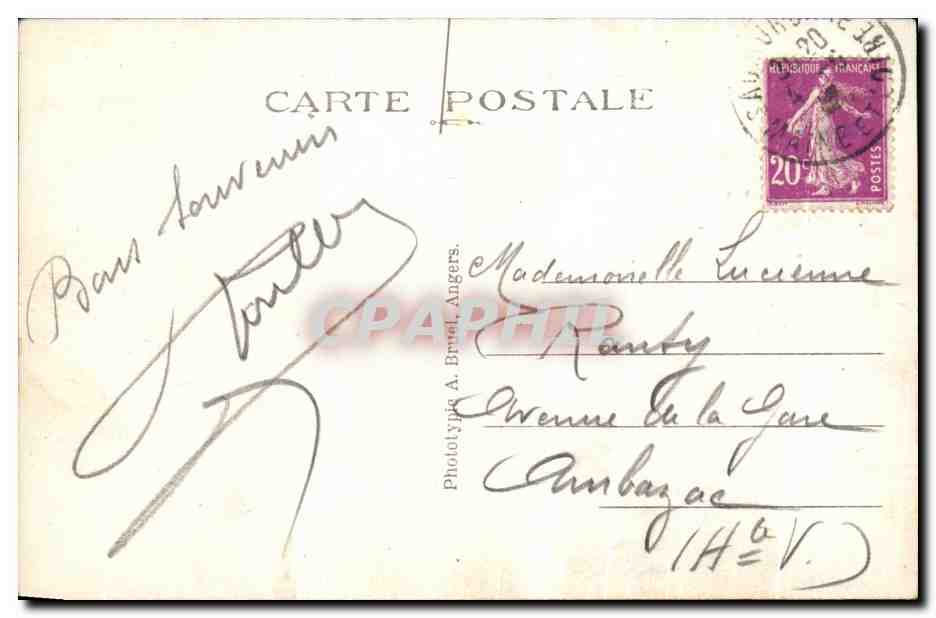 CARTE POSTALE
RÉPUBLIQUE FRANÇAISE
20c
POSTES
MAINE ET
Bons souvenirs
Phototypie A. Bruel, Angers.
CPAPHIL
Mademoiselle Lucienne
Ranty
Avenue de la Gare
Ambazac
(Hte V.)